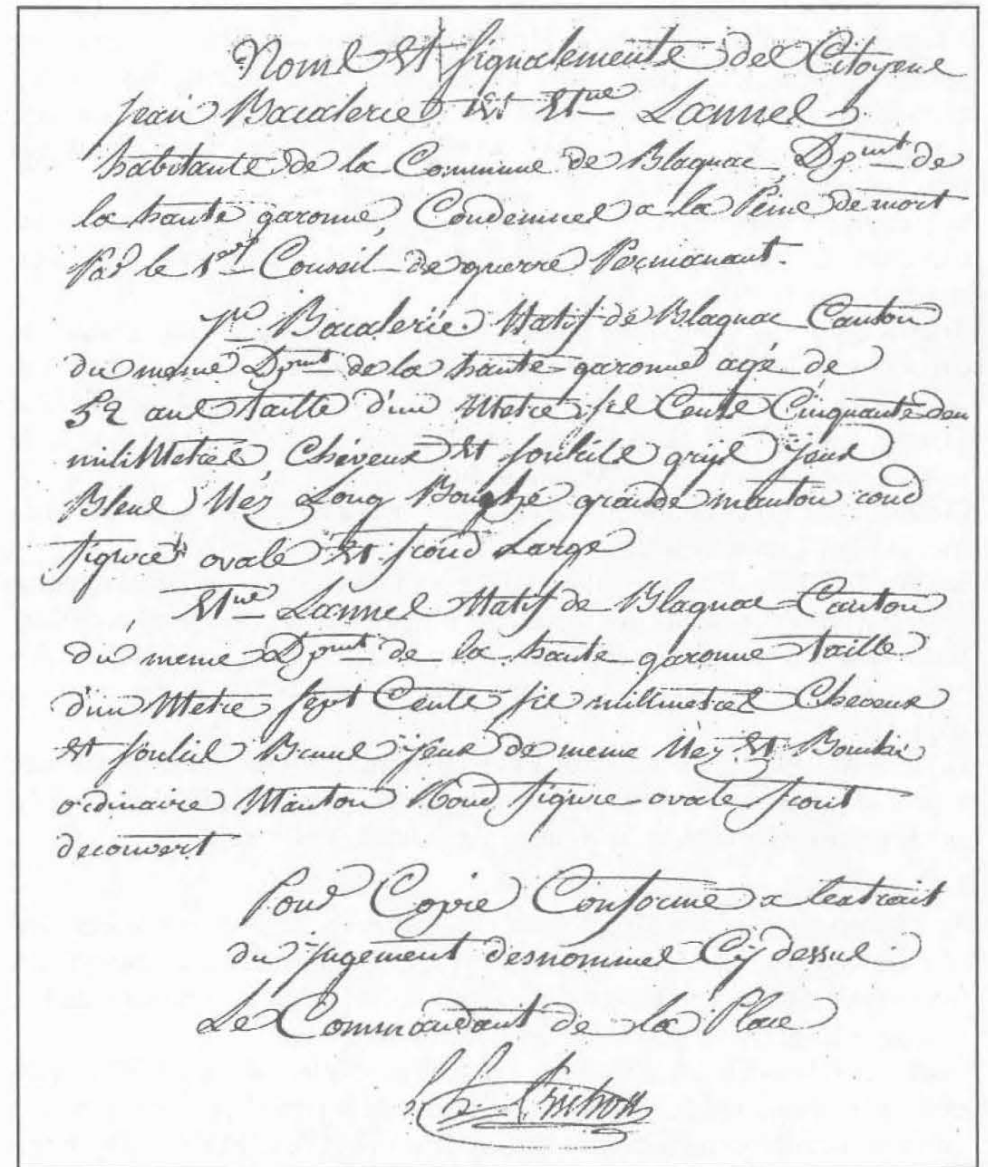 Noms Et signalements des Citoyens
jean Bacalerie Et Et.ne Lannes
habitants de la Commune de Blagnac, Dp.mt de
la haute garonne, Condemnes a la Peine de mort
Par le 1.er Conseil de guerre Permanant.
Bacalerie Natif de Blagnac Canton
du meme Dp.mt de la haute garonne agé de
52 ans taille d'un Metre six Cents Cinquante deux
miliMetres, Cheveux Et sourcils gris yeux
Bleus Nez Long Bouche grande manton rond
figure ovale Et front Large
Et.ne Lannes Natif de Blagnac Canton
du meme Dp.mt de la haute garonne taille
d'un Metre sept Cents six millimetres Cheveux
Et sourcil Bruns yeux de meme Nez Et Bouche
ordinaire Manton Rond figure ovale front
decouvert
Pour Copie Conforme a lextrait
du jugement desnommes Cy dessus
Le Commandant de la Place